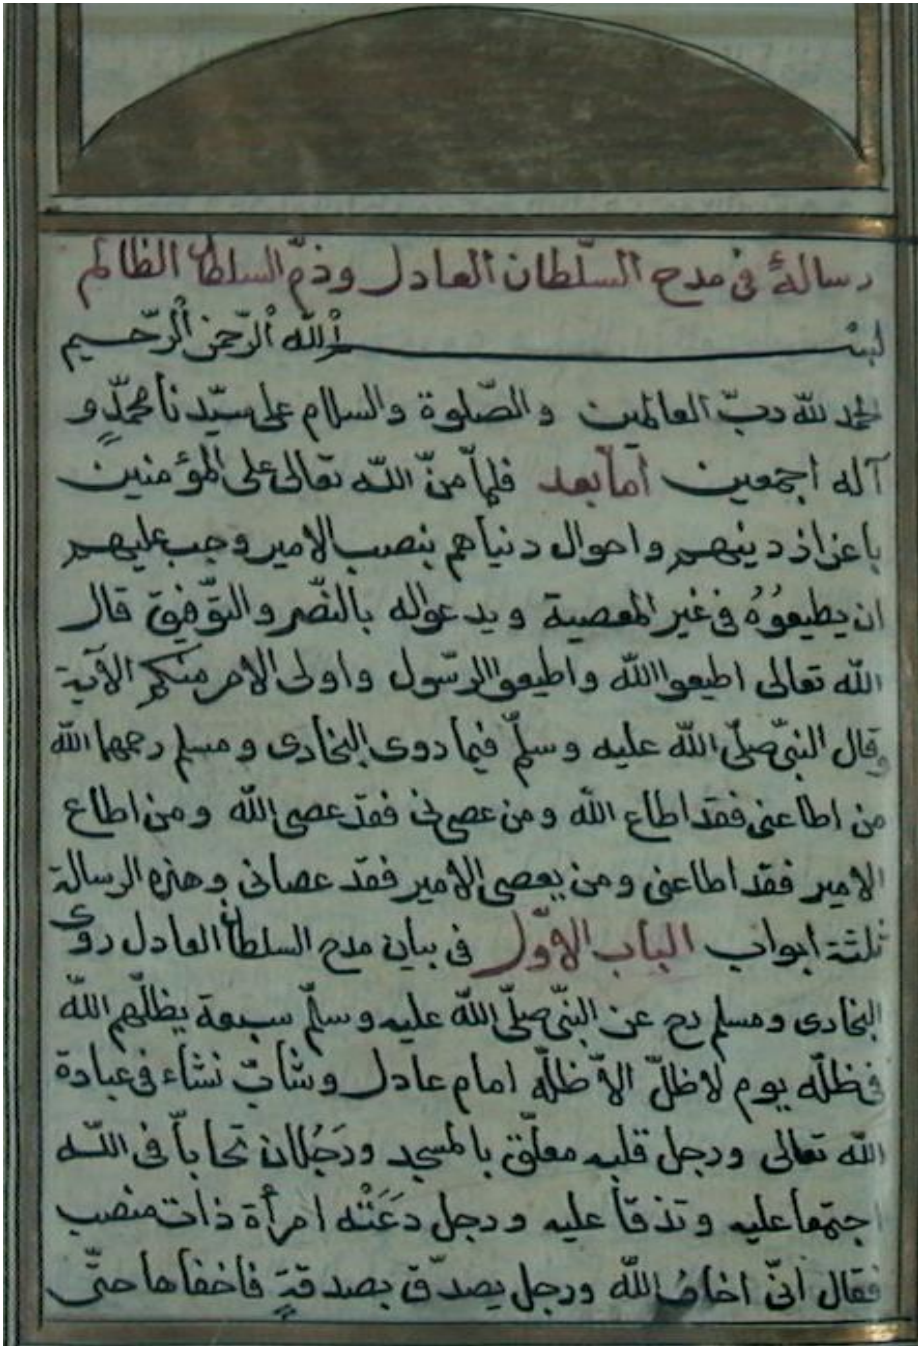 رسالةٌ فى مدح السلّطان العادل وذمّ السلطان الظالم
بسم الله الرّحمن الرّحيم
الحمد لله ربّ العالمين والصّلوة والسلام على سيّدنا محمّدٍ و
آله اجمعين امّا بعد فلمّا منّ الله تعالى على المؤمنين
باعزاز دينهم واحوال دنياهم بنصب الامير وجب عليهم
ان يطيعُوُهُ فى غير المعصية ويدعوا له بالنّصر والتوّفيق قال
الله تعالى اطيعوا الله واطيعوا الرّسول واولى الامر منكم الآية
وقال النبىّ صلّى الله عليه وسلّم فيما روى البخارى ومسلم رحمهما الله
من اطاعنى فقد اطاع الله ومن عصىنى فقد عصى الله ومن اطاع
الامير فقد اطاعنى ومن يعصى الامير فقد عصانى وهذه الرسالة
ثلثة ابواب الباب الاوّل فى بيان مدح السلطان العادل روى
البخارى ومسلم رح عن النبىّ صلّى الله عليه وسلّم سبعة يظلّهم الله
فى ظلّه يوم لا ظلّ الاّ ظلّه امام عادل وشابّ نشاء فى عبادة
الله تعالى ورجل قلبه معلّق بالمسجد ورَجُلان تحابّا فى الله
اجتمعا عليه وتفرقا عليه ورجل دَعَتْه امرأة ذات منصب
فقال انىّ اخافُ الله ورجل يصدّق بصدقةٍ فاخفاها حتّى